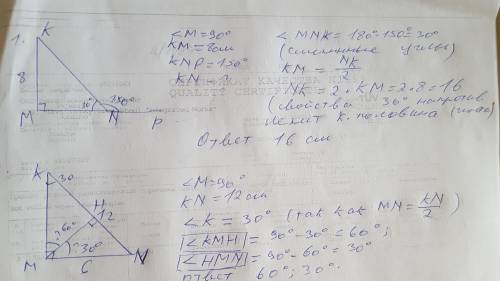 1.
K
8
M
N
P
30°
150°
∠M=90°
KM=8см
KNP=150°
KN - ?
∠MNK=180°-150°=30°
(смежные углы)
KM = NK/2
NK = 2·KM=2·8=16
(свойства 30° напротив
лежит к. половина
Ответ 16 см
K
30
H
12
60°
30°
M
6
N
∠M=90°
KN=12см
∠K=30° (так как MN=KN/2)
∠KMH = 90°-30°=60°;
∠HMN = 90°-60°=30°
ответ 60°; 30°.
QUALITY CERTIFICATE